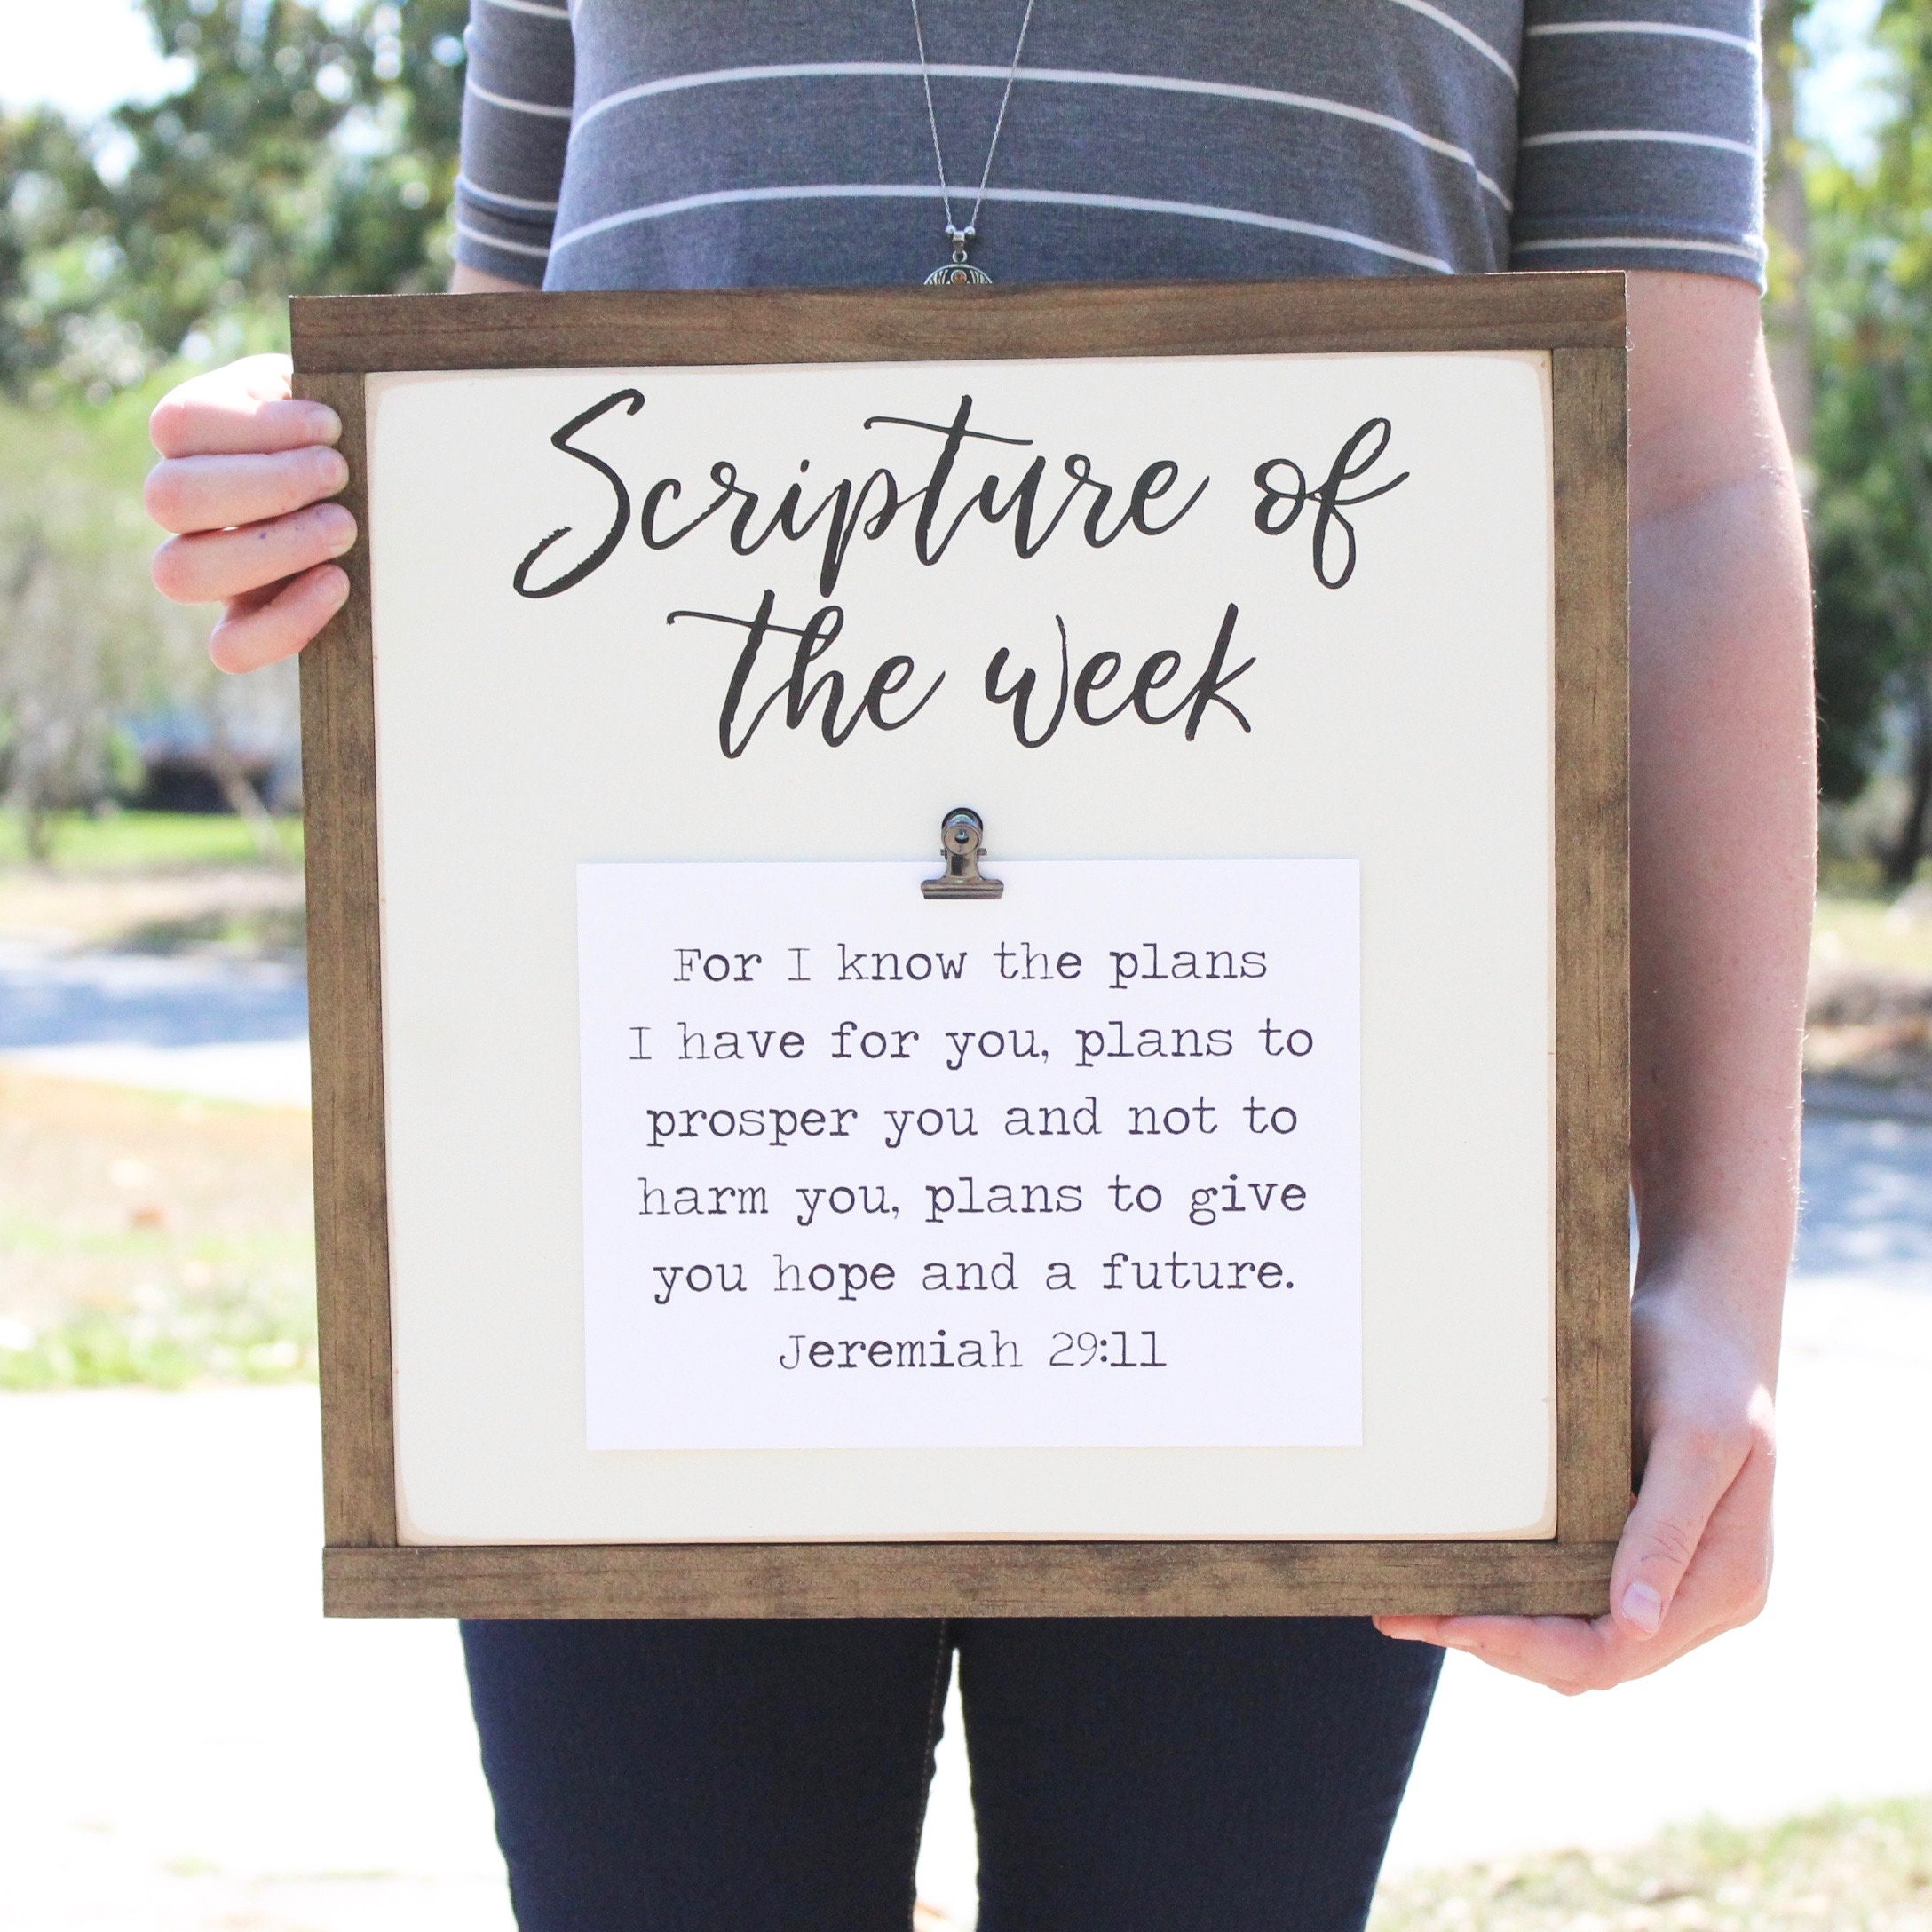 Scripture of
the week
For I know the plans
I have for you, plans to
prosper you and not to
harm you, plans to give
you hope and a future.
Jeremiah 29:11